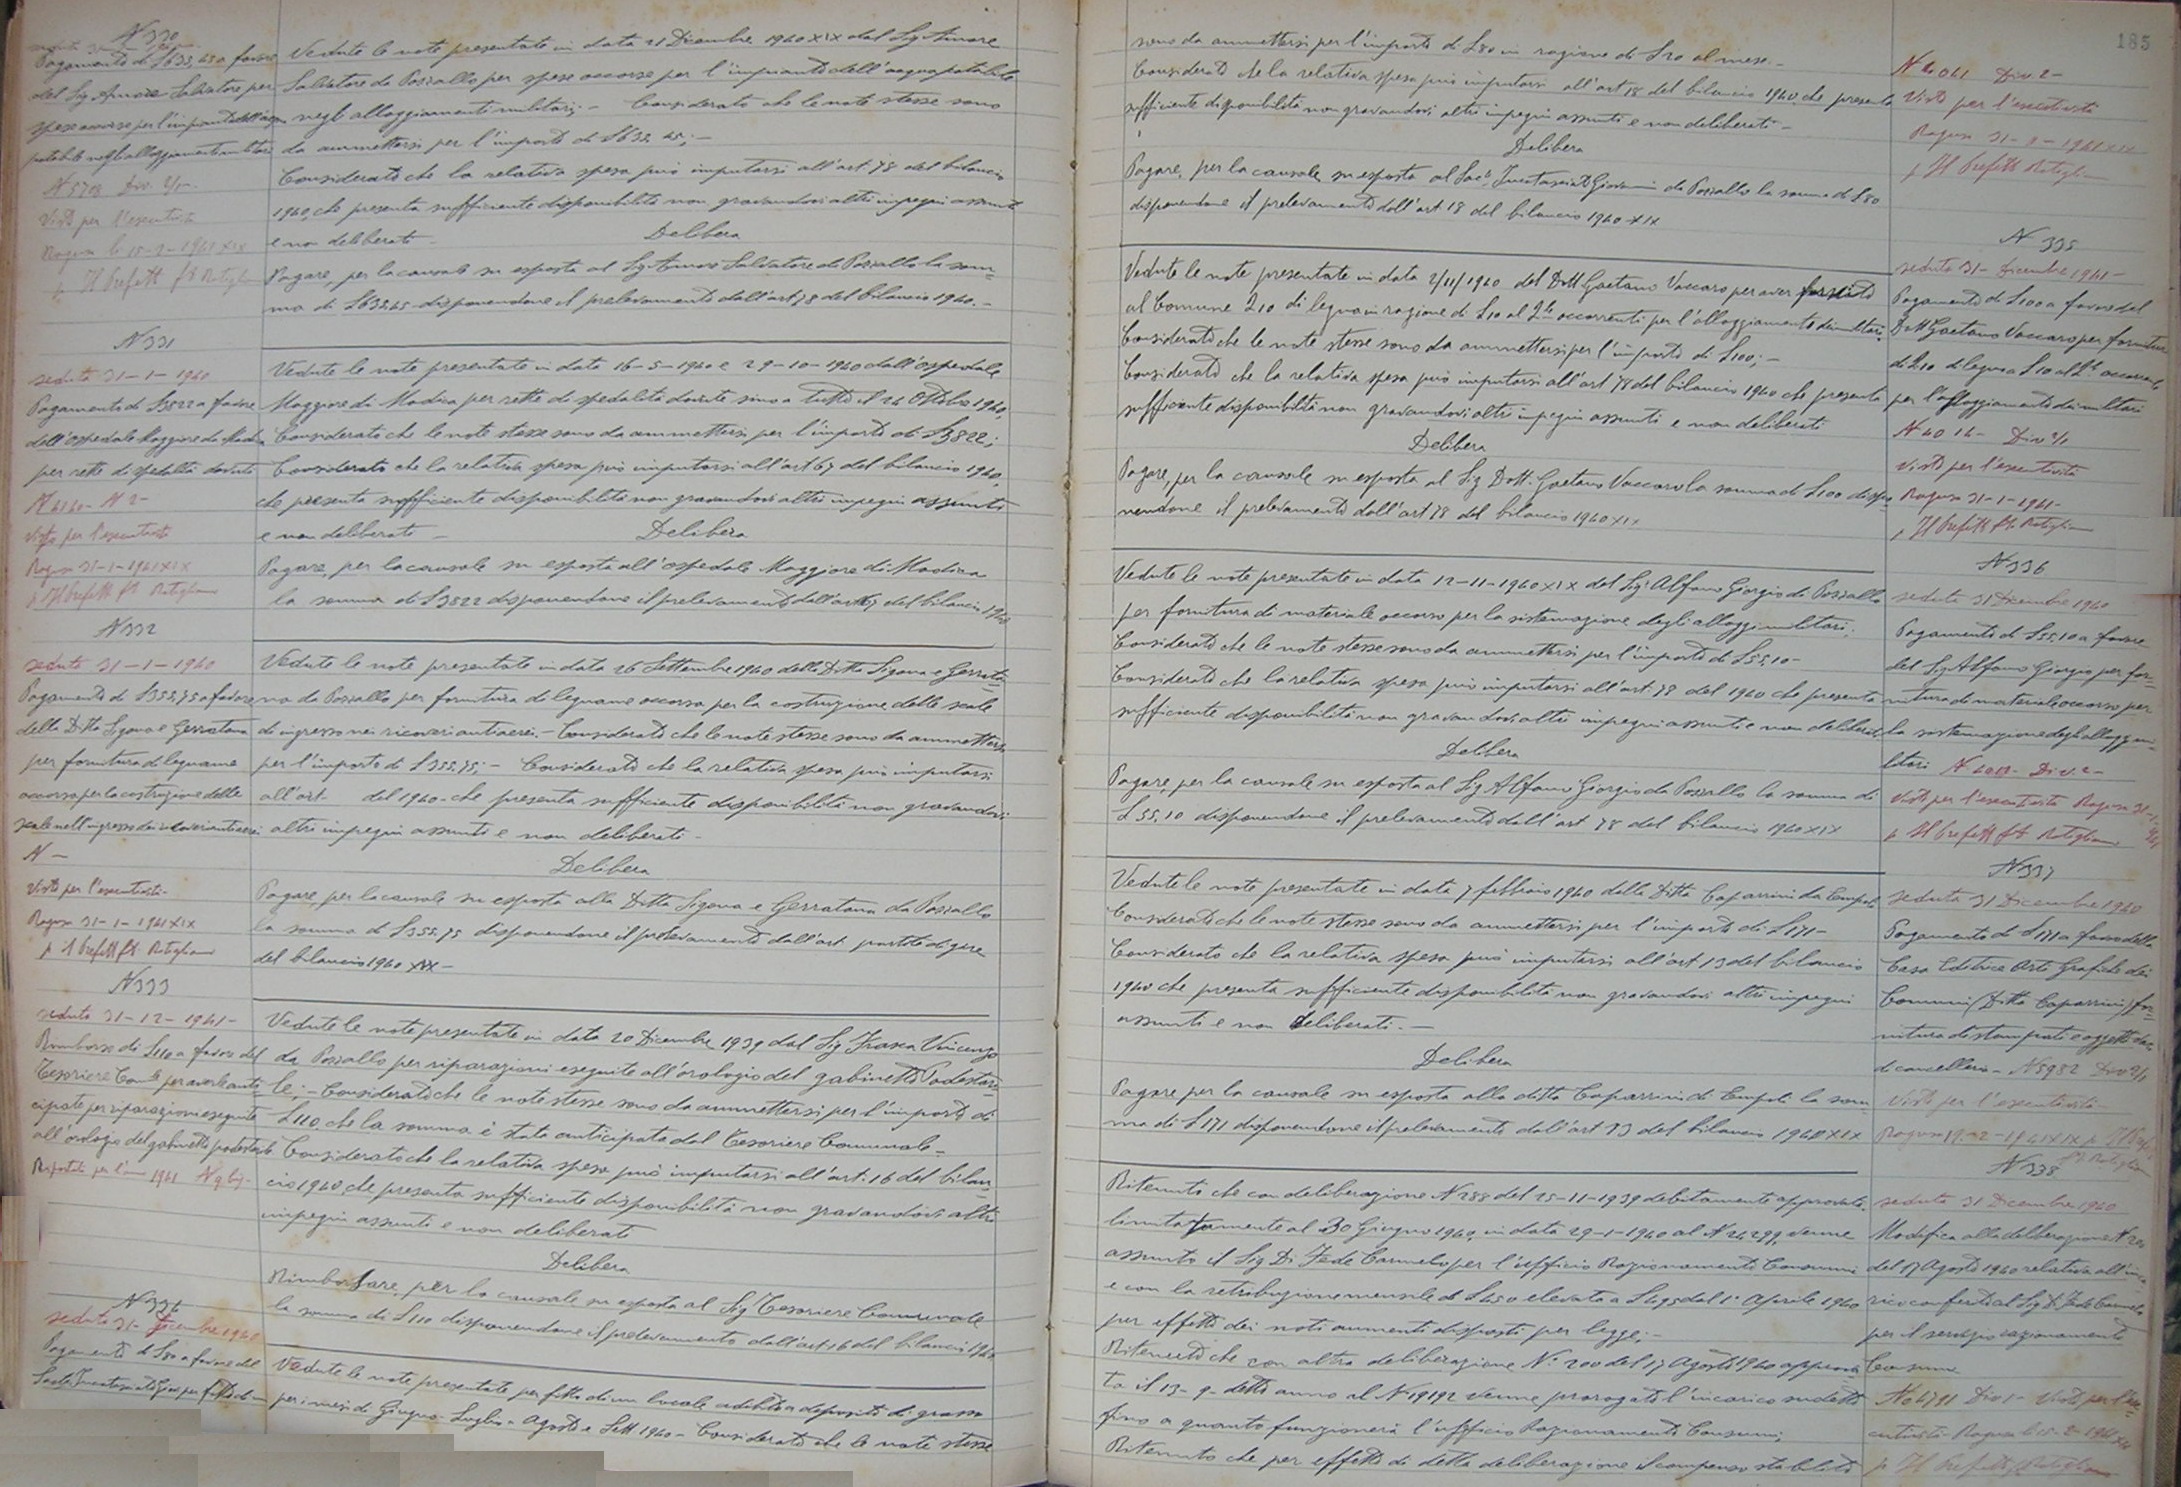 N 330
Pagamento di £ 633,45 a favore
del Sig. Amore Salvatore per
spese occorse per l'impianto dell'acqua
potabile negli alloggiamenti militari
N 5708 Div. 2/1-
Visto per l'esecutività
Ragusa li 15-2-1941 XIX
p. Il Prefetto
Vedute le note presentate in data 21 Dicembre 1940 XIX dal Sig. Amore
Salvatore da Pozzallo per spese occorse per l'impianto dell'acqua potabile
negli alloggiamenti militari; - Considerato che le note stesse sono
da ammettersi per l'importo di £ 633,45; -
Considerato che la relativa spesa può imputarsi all'art 78 del bilancio
1940, che presenta sufficiente disponibilità non gravandovi altri impegni assunti
e non deliberati -
Delibera
Pagare, per la causale su esposta al Sig. Amore Salvatore da Pozzallo la som=
ma di £ 633,45 disponendone il prelevamento dall'art 78 del bilancio 1940. -
N 331
seduta 31-1-1940
Pagamento di £ 3822 a favore
dell'ospedale Maggiore di Modica
per rette di spedalità dovute
N 4140 - N 2 -
Visto per l'esecutività
Ragusa 31-1-1941 XIX
p. Il Prefetto
Vedute le note presentate in data 16-5-1940 e 29-10-1940 dall'ospedale
Maggiore di Modica per rette di spedalità dovute sino a tutto il 24 Ottobre 1940,
Considerato che le note stesse sono da ammettersi per l'importo di £ 3822;
Considerato che la relativa spesa può imputarsi all'art 67 del bilancio 1940,
che presenta sufficiente disponibilità non gravandovi altri impegni assunti
e non deliberati -
Delibera
Pagare, per la causale su esposta all'ospedale Maggiore di Modica
la somma di £ 3822 disponendone il prelevamento dall'art 67 del bilancio 1940
N 332
seduta 31-1-1940
Pagamento di £ 355,75 a favore
della Ditta Sigona e Gerratana
per fornitura di legname
occorso per la costruzione delle
scale nell'ingresso dei ricoveri antiaerei
N -
Visto per l'esecutività -
Ragusa 31-1-1941 XIX
p. Il Prefetto
Vedute le note presentate in data 26 Settembre 1940 della Ditta Sigona e Gerrata=
na da Pozzallo per fornitura di legname occorso per la costruzione delle scale
di ingresso nei ricoveri antiaerei. - Considerato che le note stesse sono da ammettersi
per l'importo di £ 355,75; - Considerato che la relativa spesa può imputarsi
all'art- del 1940 - che presenta sufficiente disponibilità non gravandovi
altri impegni assunti e non deliberati -
Delibera
Pagare, per la causale su esposta alla Ditta Sigona e Gerratana da Pozzallo
la somma di £ 355,75 disponendone il prelevamento dall'art partite di giro
del bilancio 1940 XIX -
N 333
seduta 31-12-1941 -
Rimborso di £ 110 a favore del
Tesoriere Com.le per averle anti=
cipate per riparazioni eseguite
all'orologio del gabinetto podestarile
Riportata per l'anno 1941 N 9
Vedute le note presentate in data 20 Dicembre 1939 dal Sig. Frasca Vincenzo
da Pozzallo per riparazioni eseguite all'orologio del gabinetto Podestari=
le; - Considerato che le note stesse sono da ammettersi per l'importo di
£ 110, che la somma è stata anticipata dal Tesoriere Comunale -
Considerato che la relativa spesa può imputarsi all'art. 16 del bilan=
cio 1940 che presenta sufficiente disponibilità non gravandovi altri
impegni assunti e non deliberati
Delibera
Rimborsare, per la causale su esposta al Sig. Tesoriere Comunale
la somma di £ 110 disponendone il prelevamento dall'art 16 del bilancio 1940
N 334
seduta 31 - Dicembre 1940
Pagamento di £ 80 a favore del
per fitto di un
Vedute le note presentate per fitto di un locale adibito a deposito di grano
per i mesi di Giugno - Luglio - Agosto e Sett 1940 - Considerato che le note stesse
185
sono da ammettersi per l'importo di £ 80 in ragione di £ 20 al mese. -
Considerato che la relativa spesa può imputarsi all'art 18 del bilancio 1940 che presenta
sufficiente disponibilità non gravandovi altri impegni assunti e non deliberati -
Delibera
Pagare, per la causale su esposta al Sac. Giovanni da Pozzallo la somma di £ 80
disponendone il prelevamento dall'art 18 del bilancio 1940 XIX
N 4041 Div. 2 -
Visto per l'esecutività
Ragusa 31-1-1941 XIX
p. Il Prefetto
N 335
seduta 31 - Dicembre 1941 -
Pagamento di £ 100 a favore del
Dott Gaetano Vaccaro per fornitura
di Q 10 di legna a £ 10 al Q.le occorrente
per l'alloggiamento dei militari
N 4016 - Div 2/1
Visto per l'esecutività
Ragusa 31-1-1941 -
p. Il Prefetto
Vedute le note presentate in data 2/11/1940 del Dott Gaetano Vaccaro per aver fornito
al Comune Q 10 di legna in ragione di £ 10 al Q.le occorrenti per l'alloggiamento dei militari.
Considerato che le note stesse sono da ammettersi per l'importo di £ 100; -
Considerato che la relativa spesa può imputarsi all'art 78 del bilancio 1940 che presenta
sufficiente disponibilità non gravandovi altri impegni assunti e non deliberati
Delibera
Pagare, per la causale su esposta al Sig. Dott. Gaetano Vaccaro la somma di £ 100 dispo=
nendone il prelevamento dall'art 78 del bilancio 1940 XIX
N 336
seduta 31 Dicembre 1940
Pagamento di £ 55,10 a favore
del Sig. Alfano Giorgio per for=
nitura di materiale occorso per
la sistemazione degli alloggi mi=
litari N 4018 - Div. 2 -
Visto per l'esecutività Ragusa 31-1-
p. Il Prefetto
Vedute le note presentate in data 12-11-1940 XIX del Sig. Alfano Giorgio di Pozzallo
per fornitura di materiale occorso per la sistemazione degli alloggi militari.
Considerato che le note stesse sono da ammettersi per l'importo di £ 55,10 -
Considerato che la relativa spesa può imputarsi all'art. 78 del 1940 che presenta
sufficiente disponibilità non gravandovi altri impegni assunti e non deliberati
Delibera
Pagare, per la causale su esposta al Sig. Alfano Giorgio da Pozzallo la somma di
£ 55,10 disponendone il prelevamento dall'art 78 del bilancio 1940 XIX
N 337
seduta 31 Dicembre 1940
Pagamento di £ 171 a favore della
Casa Editrice Arti Grafiche dei
Comuni (Ditta Caparrini) for=
nitura di stampati e oggetti vari
di cancelleria - N 5982 Div 2/1
Visto per l'esecutività
Ragusa 19-2-1941 XIX p. Il Prefetto
Vedute le note presentate in data 7 febbraio 1940 della Ditta Caparrini da Empoli
Considerato che le note stesse sono da ammettersi per l'importo di £ 171 -
Considerato che la relativa spesa può imputarsi all'art 13 del bilancio
1940 che presenta sufficiente disponibilità non gravandovi altri impegni
assunti e non deliberati. -
Delibera
Pagare per la causale su esposta alla ditta Caparrini di Empoli la som=
ma di £ 171 disponendone il prelevamento dall'art 13 del bilancio 1940 XIX
N 338
seduta 31 Dicembre 1940
Modifica alla deliberazione N 200
del 17 Agosto 1940 relativa all'inca=
rico conferito al Sig. Di Fede Carmelo
per il servizio razionamento
Consumi
N 6791 Div 1 - Visto per l'ese=
cutività Ragusa li 15-2-1941 XIX
p. Il Prefetto
Ritenuto che con deliberazione N 288 del 25-11-1939 debitamente approvata,
limitatamente al 30 Giugno 1940, in data 29-1-1940 al N 24299, venne
assunto il Sig. Di Fede Carmelo per l'ufficio Razionamento Consumi
e con la retribuzione mensile di £ 450 elevata a £ 495 dal 1° Aprile 1940
per effetto dei noti aumenti disposti per legge; -
Ritenuto che con altra deliberazione N.° 200 del 17 Agosto 1940 approva=
ta il 13-9- detto anno al N 19192 venne prorogato l'incarico sudetto
fino a quanto funzionerà l'ufficio Razionamento Consumi;
Ritenuto che per effetto di detta deliberazione il compenso stabilito